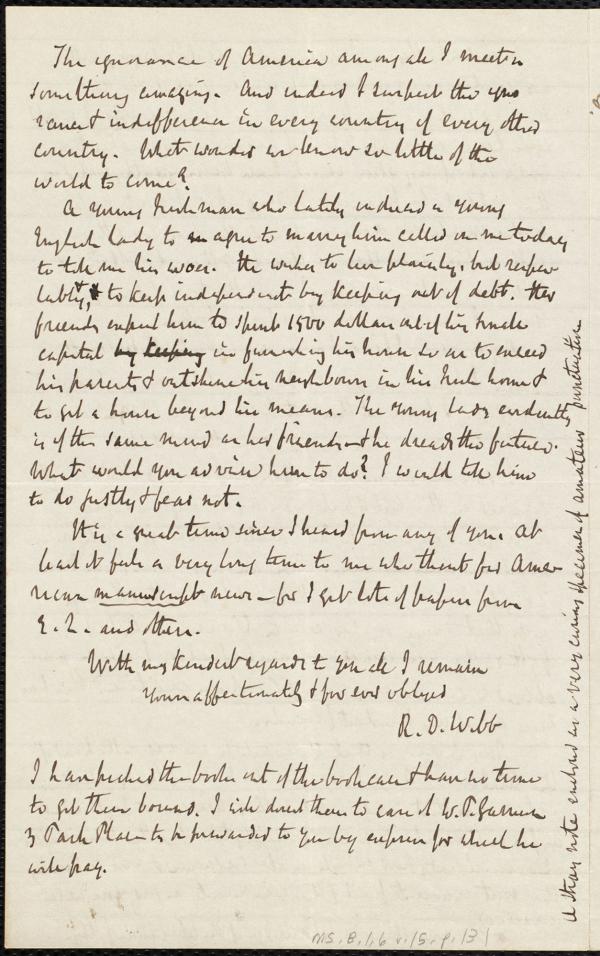 The ignorance of America among all I meet is
something amazing. And indeed I suspect the igno
rance & indifference in every country of every other
country. What wonder we know so little of the
world to come?
A young Irishman who lately induced a young
English lady to agree to marry him called on me today
to tell me his woes. He wishes to live plainly, but respec
tably, & to keep independent by keeping out of debt. Her
friends expect him to spend 1500 dollars out of his small
capital by keeping in furnishing his house so as to exceed
his parents & outshine his neighbours in his Irish home &
to get a house beyond his means. The young lady evidently
is of the same mind as her friends & he dreads the future.
What would you advise him to do? I would tell him
to do justly & fear not.
It is a great time since I heard from any of you. At
least it feels a very long time to me who thirst for Ame-
rican manuscript news – for I get lots of papers from
E. L. and others.
With my kindest regards to you all I remain
Yours affectionately & for ever obliged
R. D. Webb
I have picked the books out of the bookcase & have no time
to get them bound. I will direct them to care of W. P. Garrison
3 Park Place to be forwarded to you by express for which he
will pay.
A stray note enclosed as a very curious specimen of amateur punctuation
MS. B. 1. 6 v. 15. p. 131